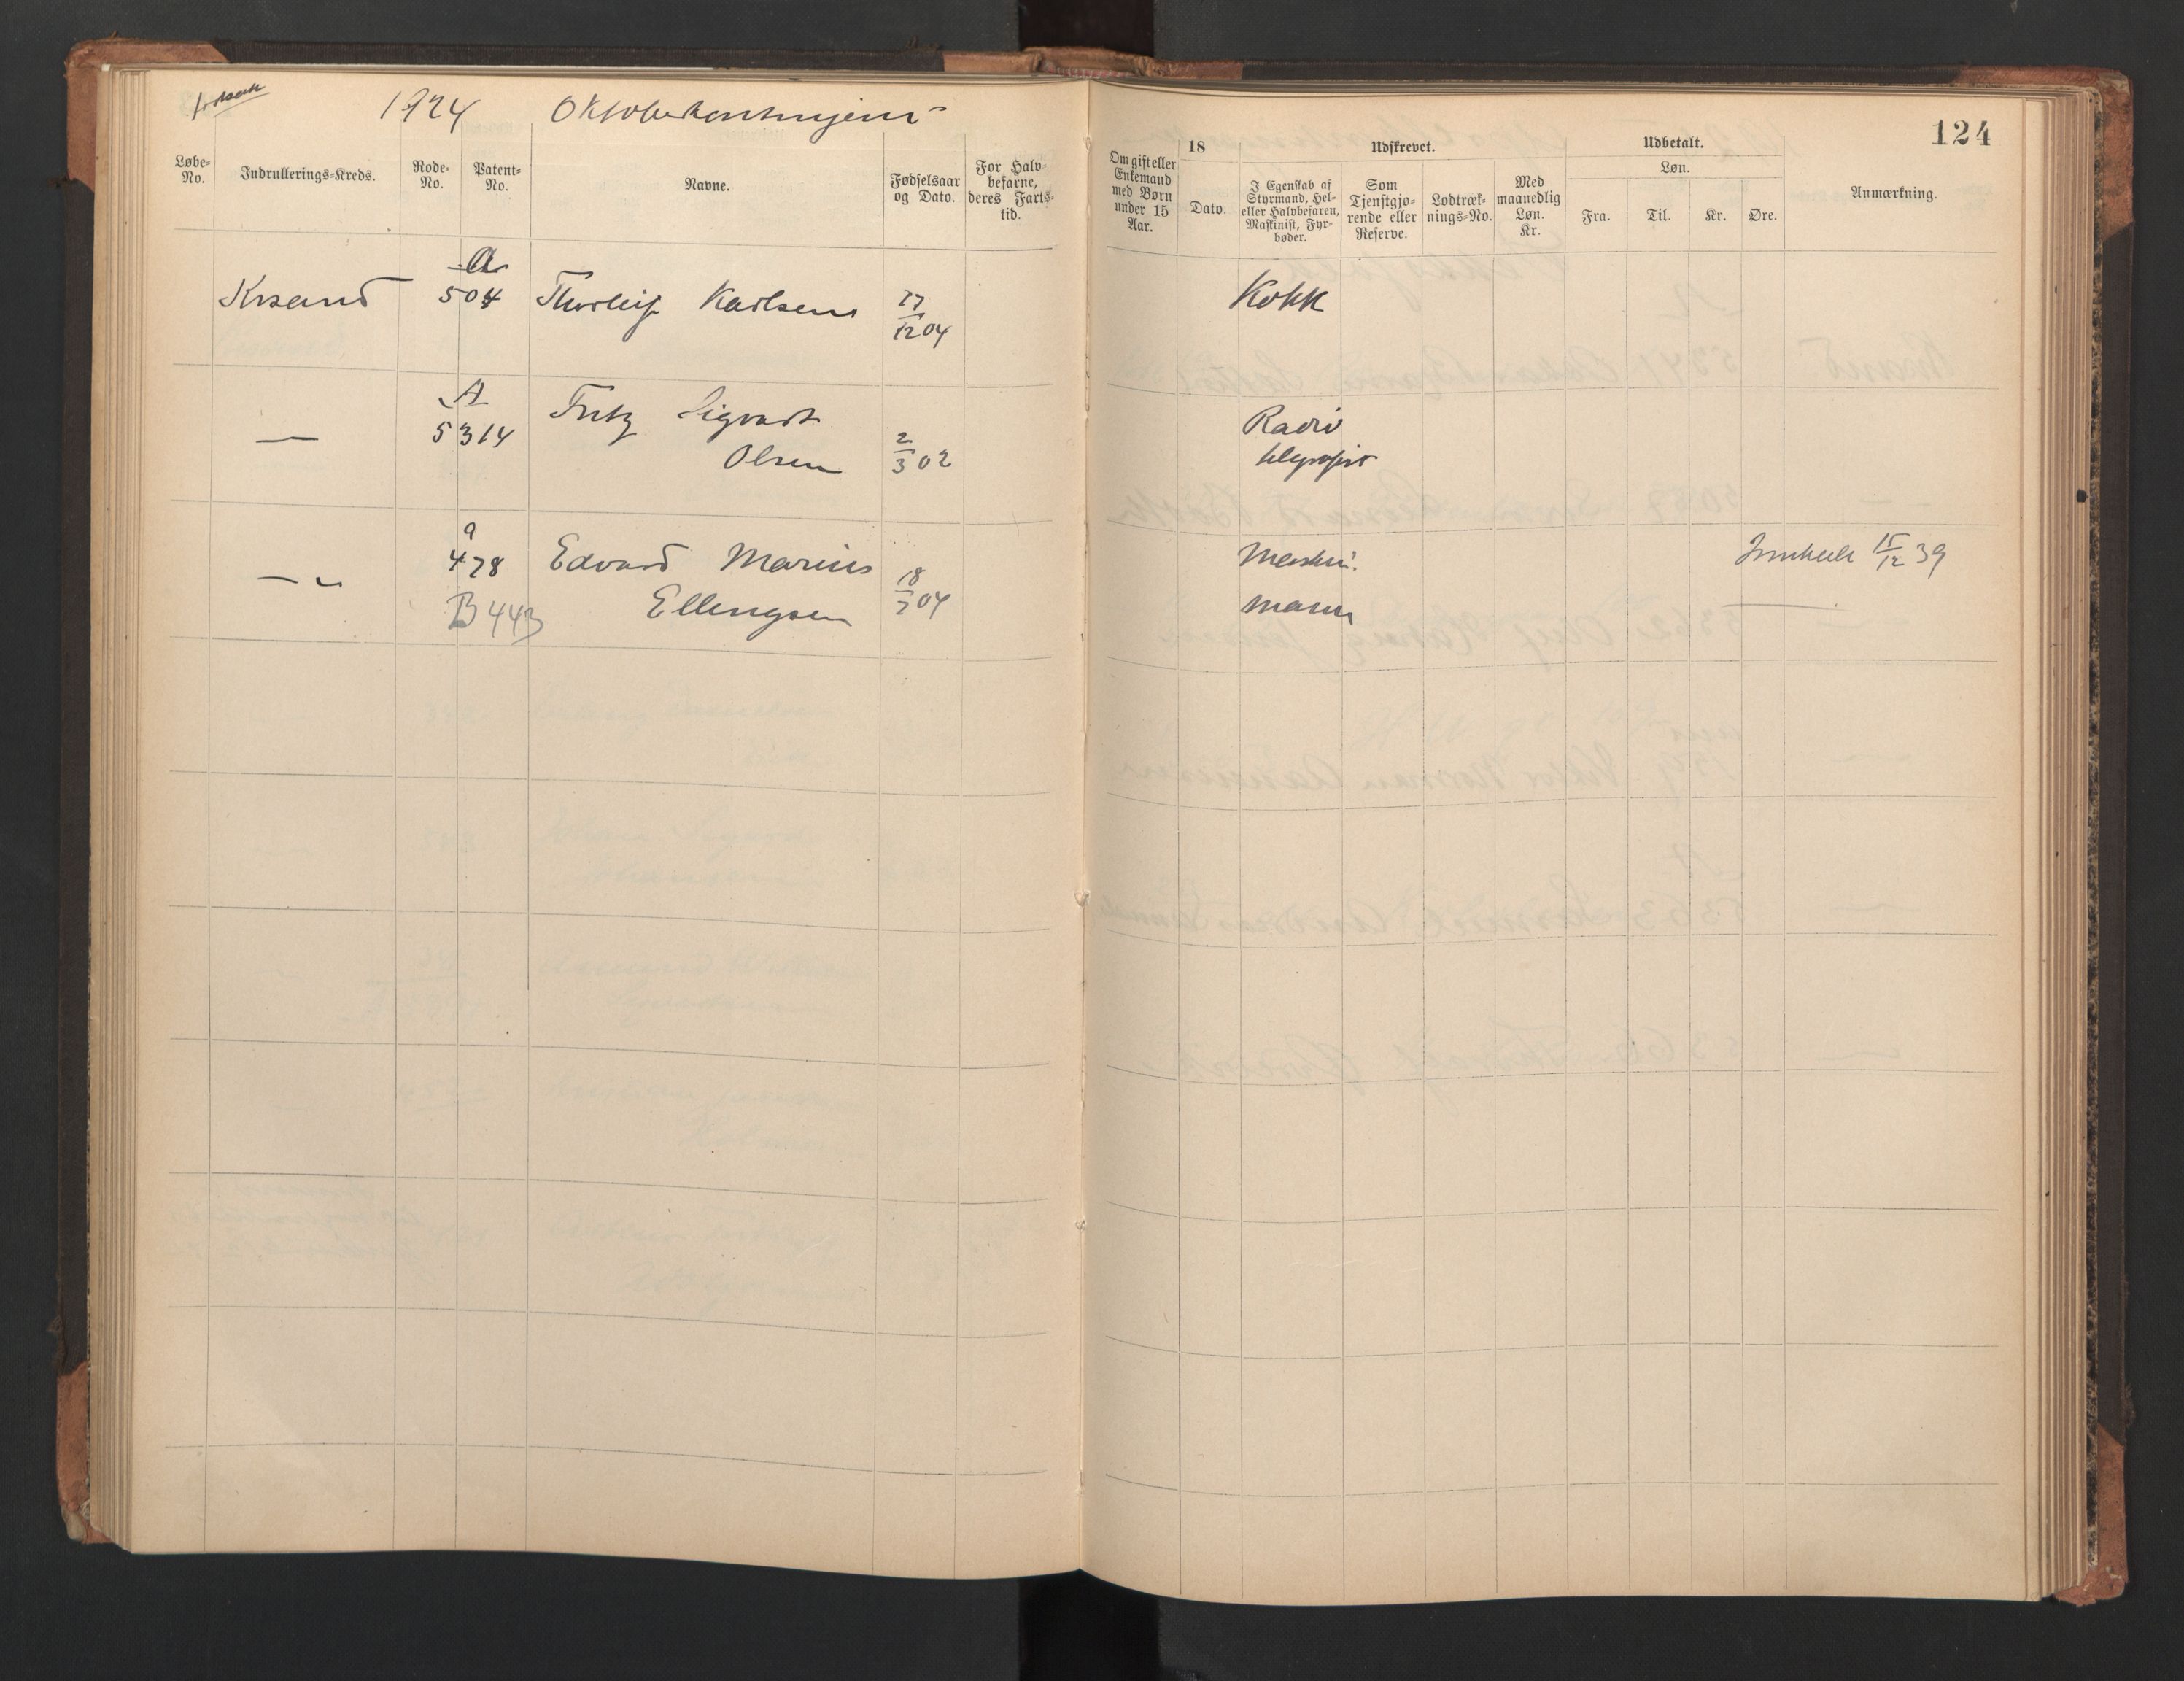 1924 Oktoberkontingent
124
Løbe-No.
Indrullerings-Kreds.
Rode-No.
Patent-No.
Navne.
Fødselsaar og Dato.
For Halvbefarne, deres Fartstid.
Om gift eller Enkemand med Børn under 15 Aar.
18
Dato.
Udskrevet.
I Egenskab af Styrmand, Hel- eller Halvbefaren, Maskinist, Fyrbøder.
Som Tjenstgjørende eller Reserve.
Lodtræknings-No.
Med maanedlig Løn. Kr.
Udbetalt.
Løn.
Fra.
Til.
Kr.
Øre.
Anmærkning.
A
Krsand 504 Thorleif Karlsen 17/12 04 Kokk
A
— 5314 Fritz Sigvart 2/3 02 Radio
Olsen telegrafist
a
— 478 Edvard Marius 18/7 04 Maskin. 15/12 39
B 443 Ellingsen mann